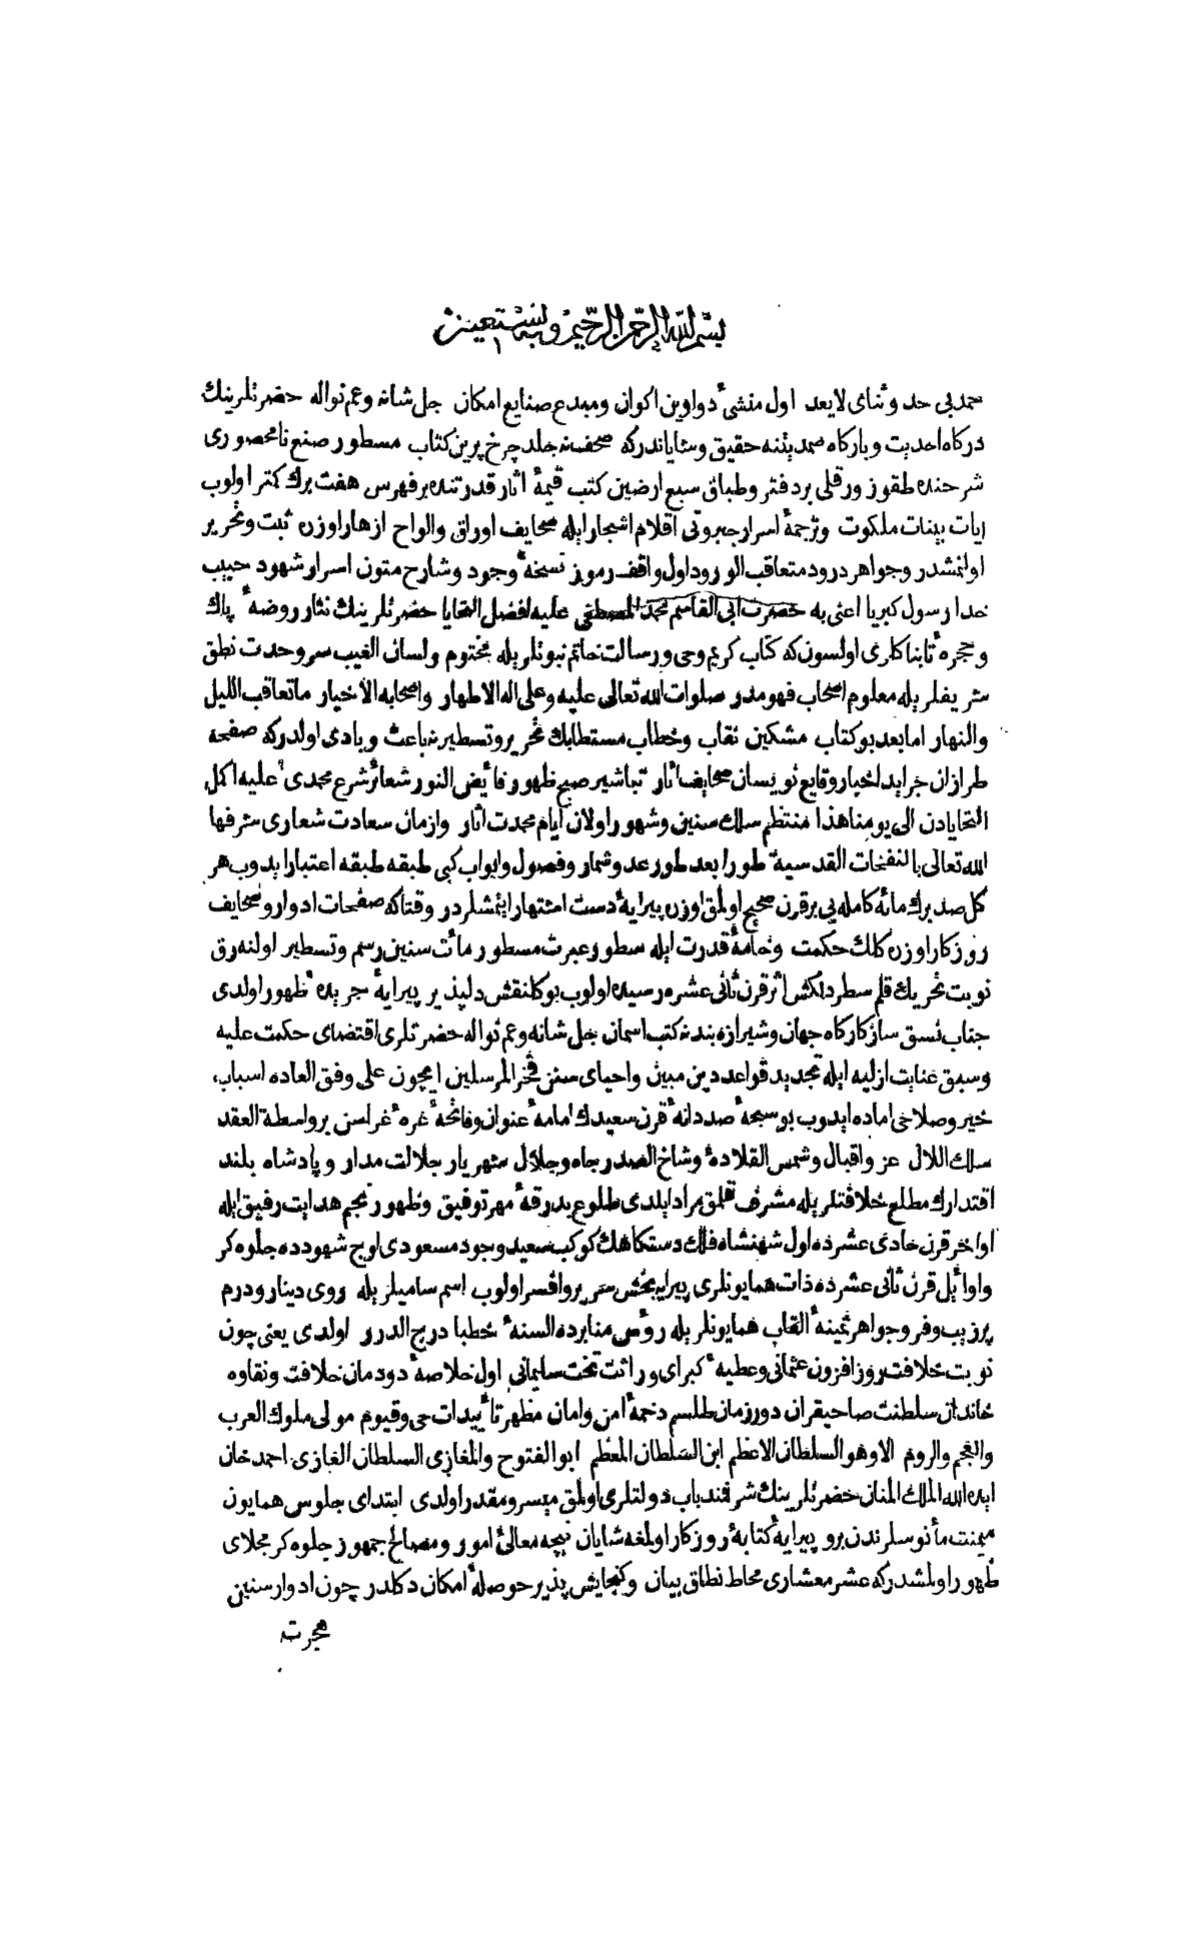 بسم الله الرحمن الرحيم وبه نستعين
حمد بی حد و ثنای لایعد اول منشیٔ دواوین اکوان ومبدع صنایع امکان جل شانه وعم نواله حضرتلرینك
درکاه احدیت و بارکاه صمدیتنه حقیق وسنایاندرکه صحف نه جلد چرخ برین کتاب مسطور صنع نامحصوری
شرحنده طقوز ورقلی بر دفتر وطباق سبع ارضین کتب قیمهٔ اثار قدرتنده بر فهرس هفت برك کمتر اولوب
ایات بینات ملکوت وترجمهٔ اسرار جبروتی اقلام اشجار ایله صحایف اوراق والواح ازهار اوزره ثبت وتحریر
اولنمشدر وجواهر درود متعاقب الورود اول واقف رموز نسخهٔ وجود وشارح متون اسرار شهود حبیب
خدا رسول کبریا اعنی به حضرت ابی القاسم محمد المصطفی علیه افضل التحایا حضرتلرینك نثار روضهٔ پاك
وحجرهٔ تابناکلری اولسون که کتاب کریم وحی ورسالت خاتم نبوتلریله مختوم ولسان الغیب سر وحدت نطق
شریفلریله معلوم اصحاب فهومدر صلوات الله تعالی علیه وعلی اله الاطهار واصحابه الاخیار ماتعاقب اللیل
والنهار اما بعد بو کتاب مشکین نقاب وخطاب مستطابك تحریر وتسطیرنه باعث وبادی اولدرکه صفحه
طرازان جراید اخبار وقایع نویسان صحایف اثار تباشیر صبح ظهور فائض النور شعائر شرع محمدی علیه اکمل
التحایادن الی یومنا هذا منتظم سلك سنین وشهور اولان ایام محمدت اثار وازمان سعادت شعاری شرفها
الله تعالی بالنفخات القدسیه طورا بعد طور عد وشمار وفصول وابواب کبی طبقه طبقه اعتبار ایدوب هر
کل صد برك مائهٔ کامله یی بر قرن صحیح اولمق اوزره پیرایهٔ دست اشتهار ایتمشلردر وقتاکه صفحات ادوار وصحایف
روزکار اوزره کلك حکمت وخامهٔ قدرت ایله سطور عبرت مسطور مأت سنین رسم وتسطیر اولنه رق
نوبت تحریك قلم سطر دلکش اثر قرن ثانی عشره رسیده اولوب بو کلنقش دلپذیر پیرایهٔ جریدهٔ ظهور اولدی
جناب نسق ساز کارکاه جهان وشیرازه بند نه کتب اسمان جل شانه وعم نواله حضرتلری اقتضای حکمت علیه
وسبق عنایت ازلیه ایله تجدید قواعد دین مبین واحیای سنن فخر المرسلین ایچون علی وفق العاده اسباب
خیر وصلاحی اماده ایدوب بو سبحهٔ صد دانهٔ قرن سعیدك امامهٔ عنوان وفاتحهٔ غرهٔ غراسن بر واسطة العقد
سلك اللال عز واقبال وشمس القلادهٔ وشاخ الصدر جاه وجلال شهریار جلالت مدار وپادشاه بلند
اقتدارك مطلع خلافتلریله مشرف قیلمق مراد ایلدی طلوع بدرقهٔ مهر توفیق وظهور نجم هدایت رفیق ایله
اواخر قرن حادی عشرده اول شهنشاه فلك دستکاهك کوکب سعید وجود مسعودی اوج شهودده جلوه کر
واوائل قرن ثانی عشرده ذات همایونلری پیرایه بخش سریر وافسر اولوب اسم سامیلریله روی دینار ودرم
پر زیب وفر وجواهر ثمینهٔ القاب همایونلریله رؤس منابرده السنهٔ خطبا درج الدرر اولدی یعنی چون
نوبت خلافت روز افزون عثمانی وعطیهٔ کبرای وراثت تخت سلیمانی اول خلاصهٔ دودمان خلافت ونقاوه
خاندان سلطنت صاحبقران دور زمان طلسم دخمهٔ امن وامان مظهر تأییدات حی وقیوم مولی ملوك العرب
والعجم والروم الا وهو السلطان الاعظم ابن السلطان المعظم ابو الفتوح والمغازی السلطان الغازی احمد خان
ایده الله الملك المنان حضرتلرینك شرفند باب دولتلری اولمق میسر ومقدر اولدی ابتدای جلوس همایون
میمنت مأنوسلرندن برو پیرایهٔ کتابهٔ روزکار اولمغه شایان نیچه معالیٔ امور ومصالح جمهور جلوه کر مجلای
ظهور اولمشدرکه عشر معشاری محاط نطاق بیان وکنجایش پذیر حوصلهٔ امکان دکلدر چون ادوار سنین
هجرت